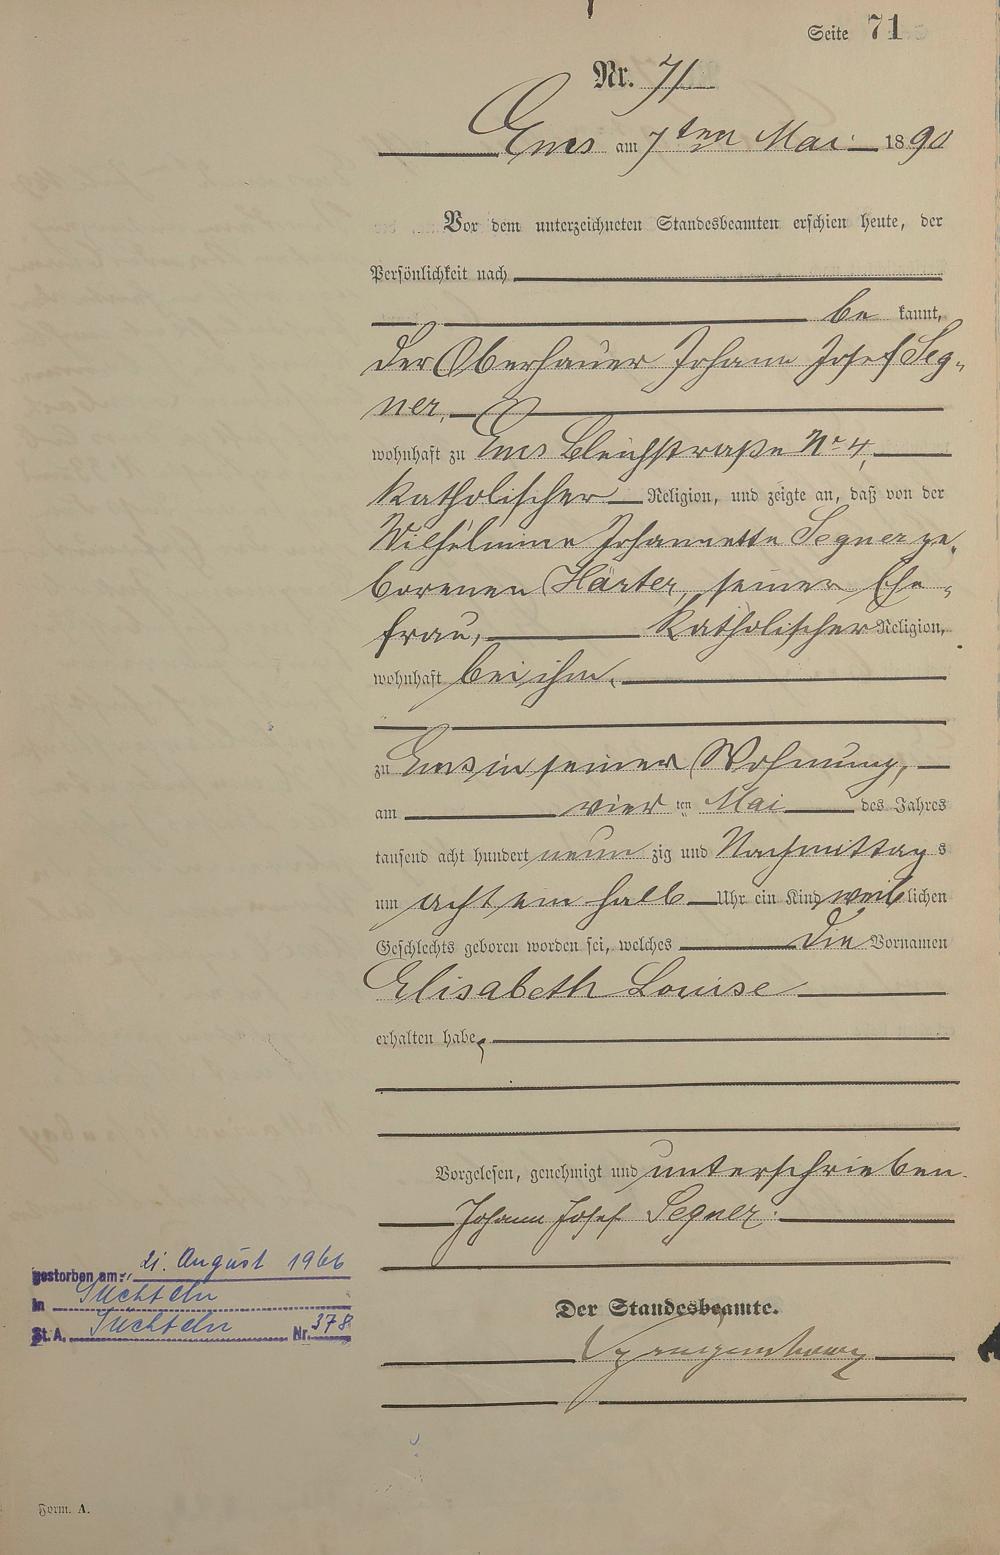 Seite 71
Nr. 71
Ems am 7ten Mai 1890
Vor dem unterzeichneten Standesbeamten erschien heute, der
Persönlichkeit nach
be kannt,
der Oberhauer Johann Josef Seg-
ner,
wohnhaft zu Ems Bleichstraße Nr 4,
katholischer Religion, und zeigte an, daß von der
Wilhelmine Johannette Segner ge-
borenen Härter, seiner Ehe-
frau, katholischer Religion,
wohnhaft bei ihm,
zu Ems in seiner Wohnung,
am vier ten Mai des Jahres
tausend acht hundert neun zig und Nachmittag s
um acht ein halb Uhr ein Kind weib lichen
Geschlechts geboren worden sei, welches die Vornamen
Elisabeth Louise
erhalten habe,
Vorgelesen, genehmigt und unterschrieben.
Johann Josef Segner.
gestorben am: 21. August 1966
in Süchteln
St. A. Süchteln Nr. 378
Der Standesbeamte.
Form. A.